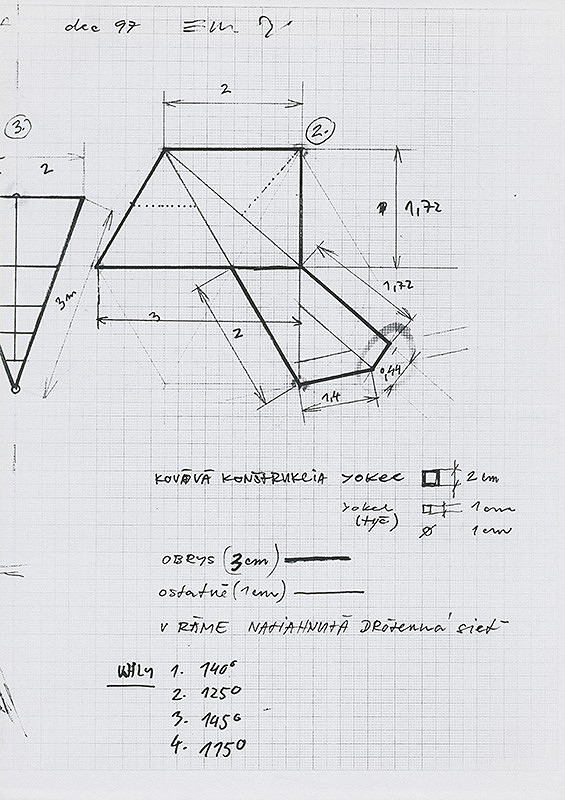 dec 97
2
3.
2.
2
1,72
3m
1,72
3
2
0,44
1,4
KOVOVÁ KONŠTRUKCIA JOKEL 2 cm
JOKEL 1 cm
(tyč) ø 1 cm
OBRYS (3 cm)
ostatné (1 cm)
V RÁME NATIAHNUTÁ DRÔTENNÁ sieť
UHLY 1. 140°
2. 125°
3. 145°
4. 115°